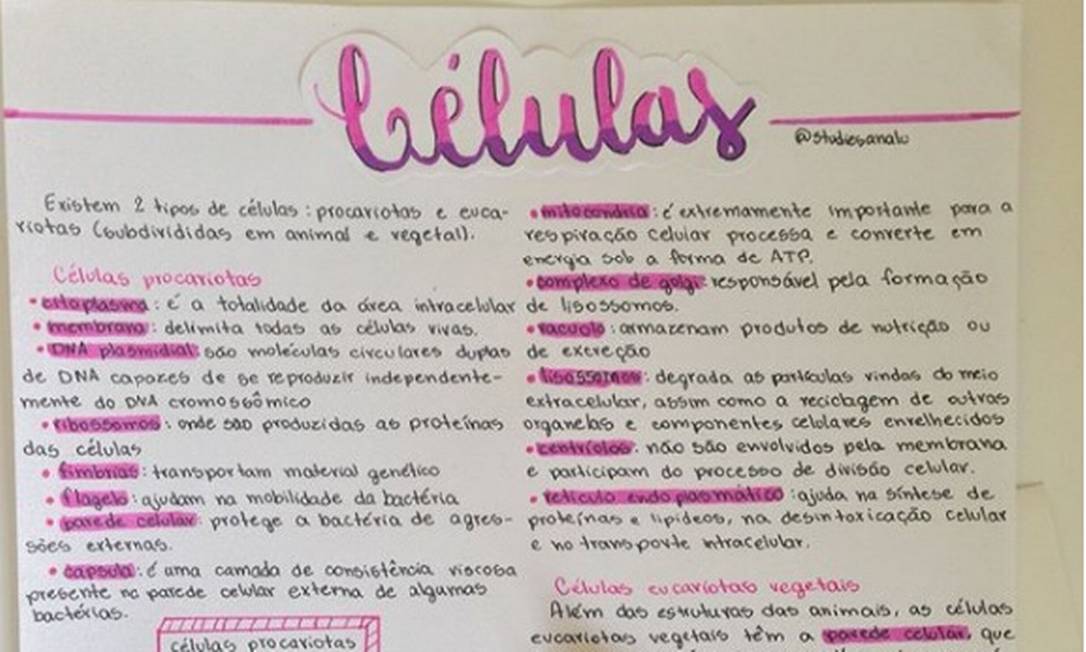 Células
@studiesanalu
Existem 2 tipos de células: procariotas e euca-
riotas (subdivididas em animal e vegetal).
Células procariotas
• citoplasma: é a totalidade da área intracelular
• membrana: delimita todas as células vivas.
• DNA plasmidial: são moléculas circulares duplas
de DNA capazes de se reproduzir independente-
mente do DNA cromossômico
• ribossomos: onde são produzidas as proteínas
das células
• fímbrias: transportam material genético
• flagelo: ajudam na mobilidade da bactéria
• parede celular: protege a bactéria de agres-
sões externas.
• capsula: é uma camada de consistência viscosa
presente na parede celular externa de algumas
bactérias.
células procariotas
• mitocondria: é extremamente importante para a
respiração celular processa e converte em
energia sob a forma de ATP.
• complexo de golgi: responsável pela formação
de lisossomos.
• vacuolo: armazenam produtos de nutrição ou
de excreção
• lisossomos: degrada as partículas vindas do meio
extracelular, assim como a reciclagem de outras
organelas e componentes celulares envelhecidos
• centríolos: não são envolvidos pela membrana
e participam do processo de divisão celular.
• retículo endoplasmático: ajuda na síntese de
proteínas e lipídeos, na desintoxicação celular
e no transporte intracelular.
Células eucariotas vegetais
Além das estruturas das animais, as células
eucariotas vegetais têm a parede celular, que